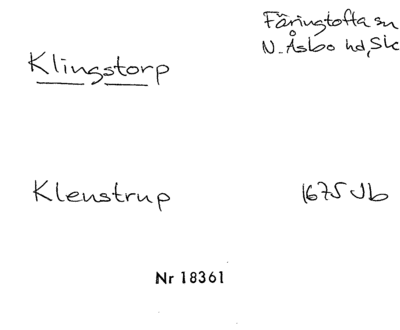 Färingtofta sn
Klingstorp
N. Åsbo hd, Sk
Klenstrup
1675 Jb
Nr 18361